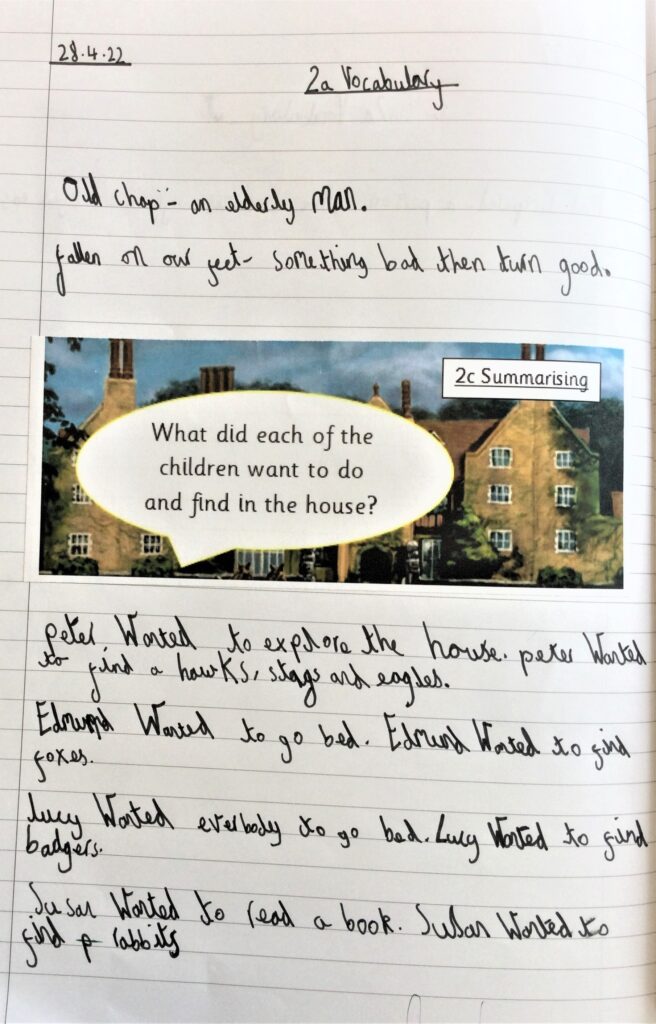 28.4.22
2a Vocabulary
Old chap - an elderly man.
fallen on our feet - something bad then turn good.
2c Summarising
What did each of the
children want to do
and find in the house?
peter Wanted to explore the house. peter Wanted
to find a hawks, stags and eagles.
Edmund Wanted to go bed. Edmund Wanted to find
foxes.
Lucy Wanted everbody to go bed. Lucy Wanted to find
badgers.
Susan Wanted to read a book. Susan Wanted to
find p rabbits